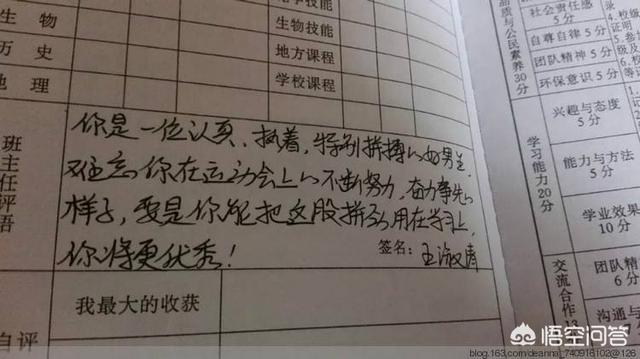 生物
生物技能
历史
地方课程
地理
学校课程
班主任评语
你是一位认真、执着,特别拼搏的好男生,
难忘你在运动会上的不断努力,奋力争先的
样子,要是你能把这股拼劲用在学习上,
你将更优秀!
签名:
我最大的收获
自评
品质与公民素养30分
社会责任感
5分
自尊自律5分
团队精神5分
环保意识5分
学习能力20分
兴趣与态度
5分
能力与方法
5分
学业效果
10分
交流合作
团队精
6分
沟通与
悟空问答
blog.163.com/deannal_740916102@126